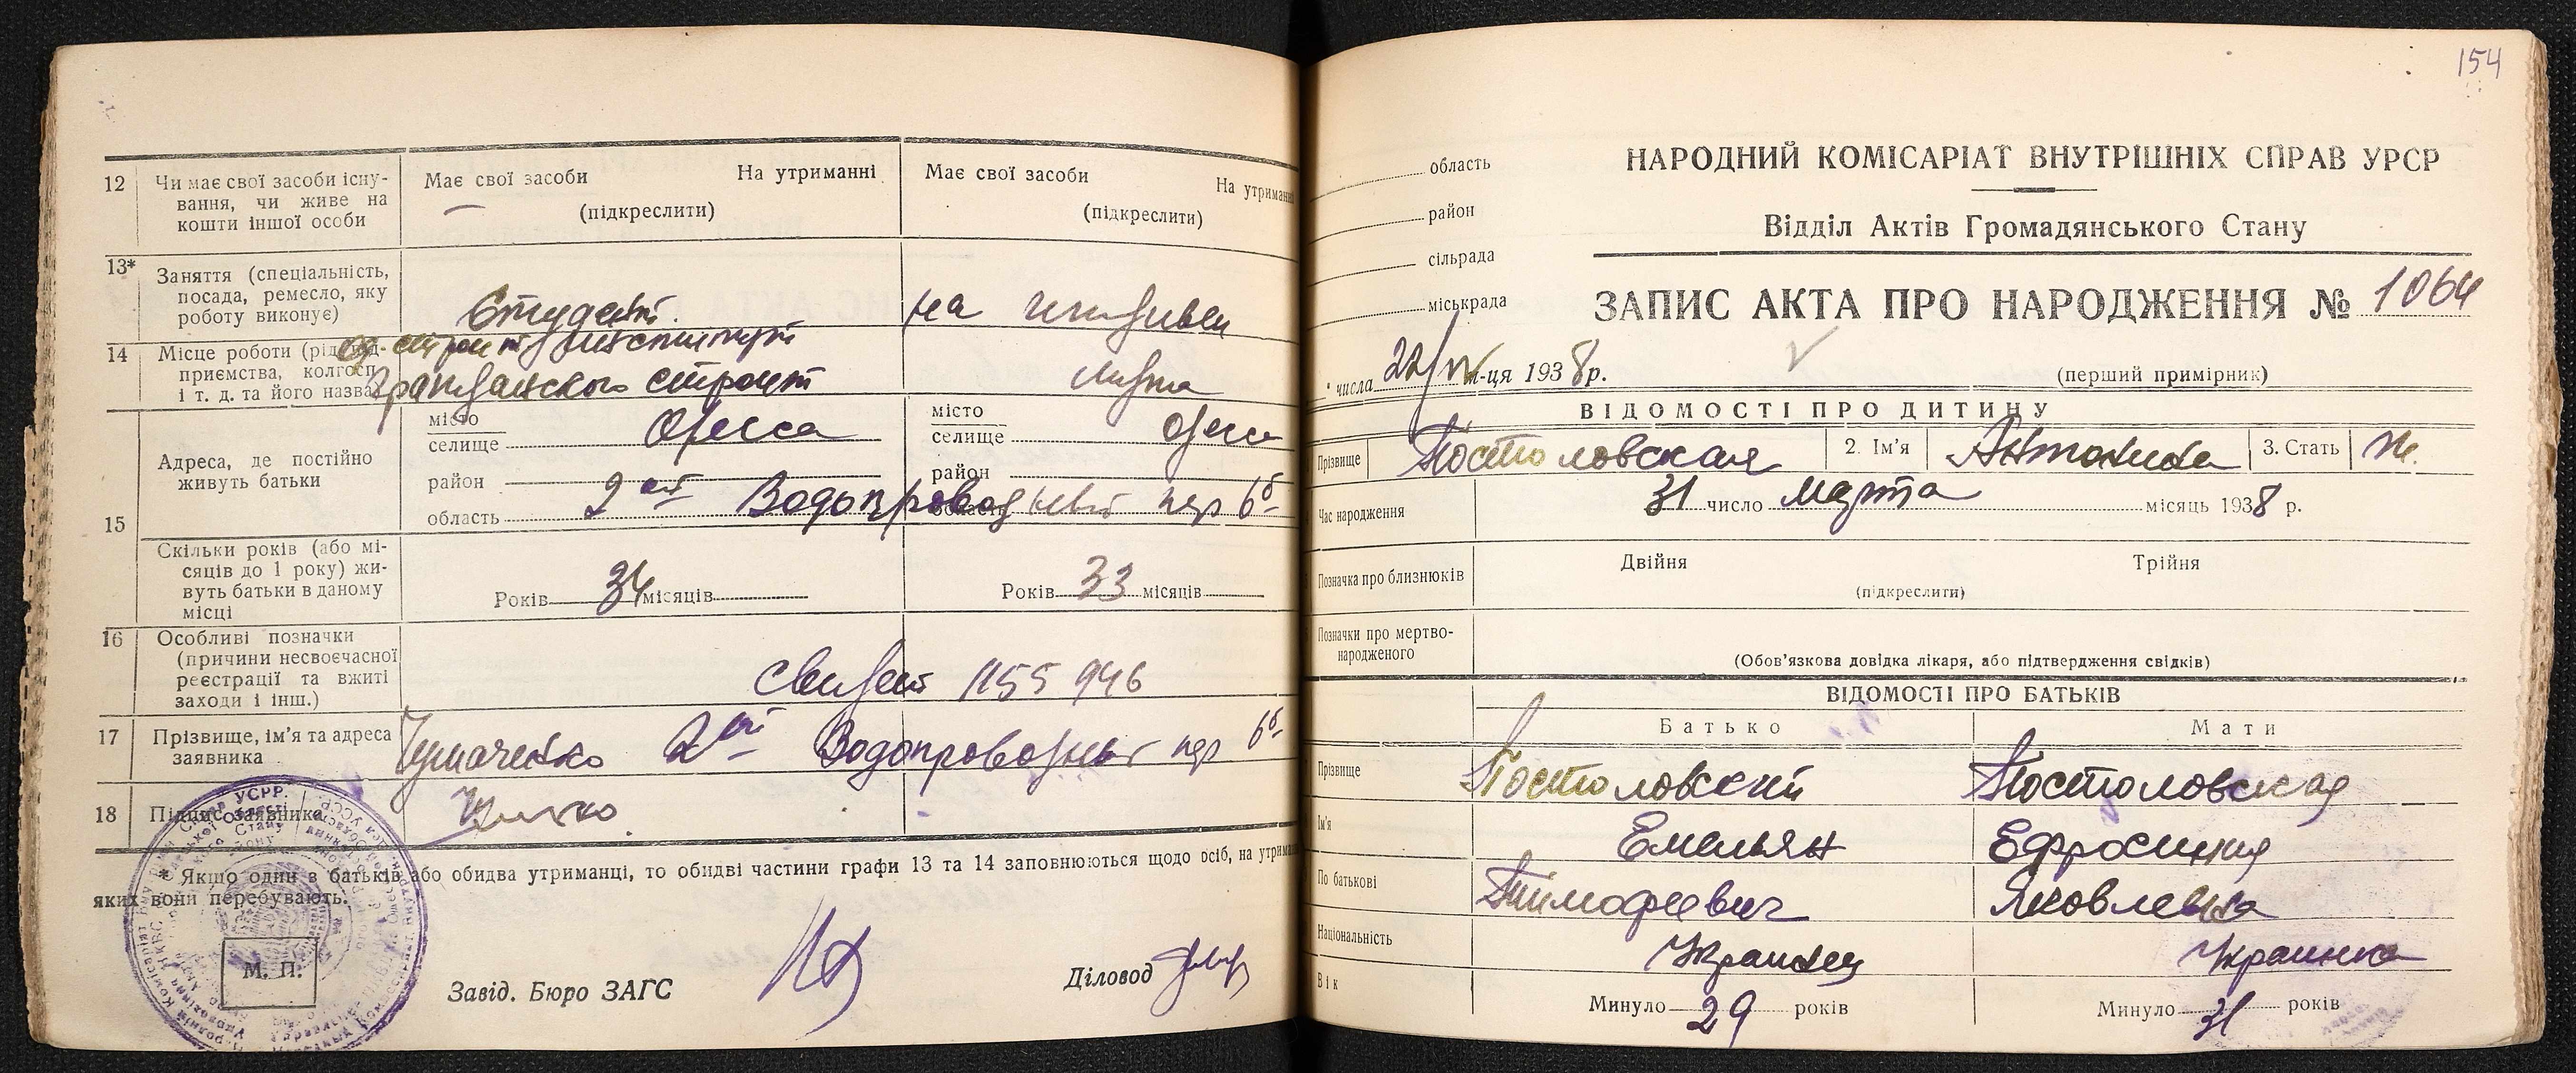 12 Чи має свої засоби існу-
вання, чи живе на
кошти іншої особи
Має свої засоби На утриманні
(підкреслити)
Має свої засоби На утриманні
(підкреслити)
13* Заняття (спеціальність,
посада, ремесло, яку
роботу виконує)
Студент.
на иждивен
14 Місце роботи (рід під-
приємства, колгосп
і т. д. та його назва)
институт
Гражданского строит
мужа
15
Адреса, де постійно
живуть батьки
місто
селище Одесса
район
область
місто
селище Одесса
район
область
2ой Водопроводный пер 6б
Скільки років (або мі-
сяців до 1 року) жи-
вуть батьки в даному
місці
Років 34 місяців
Років 33 місяців
16 Особливі позначки
(причини несвоєчасної
реєстрації та вжиті
заходи і інш.)
Свидет 1155946
17 Прізвище, ім'я та адреса
заявника
Чумаченко 2ой Водопроводный пер 6б
18 Підпис заявника
* Якщо один з батьків або обидва утриманці, то обидві частини графи 13 та 14 заповнюються щодо осіб, на утриманні
яких вони перебувають.
М. П.
Завід. Бюро ЗАГС
Діловод
154
область
район
сільрада
міськрада
НАРОДНИЙ КОМІСАРІАТ ВНУТРІШНІХ СПРАВ УРСР
Відділ Актів Громадянського Стану
ЗАПИС АКТА ПРО НАРОДЖЕННЯ № 1064
" числа 22/IV м-ця 1938 р.
(перший примірник)
ВІДОМОСТІ ПРО ДИТИНУ
Прізвище Постоловская 2. Ім'я Антонина 3. Стать ж.
Час народження 31 число марта місяць 1938 р.
Позначка про близнюків
Двійня Трійня
(підкреслити)
Позначки про мертво-
народженого
(Обов'язкова довідка лікаря, або підтвердження свідків)
ВІДОМОСТІ ПРО БАТЬКІВ
Батько Мати
Прізвище Постоловский Постоловская
Ім'я Емельян Ефросиния
По батькові Тимофеевич Яковлевна
Національність Украинец Украинка
Вік Минуло 29 років Минуло 31 років